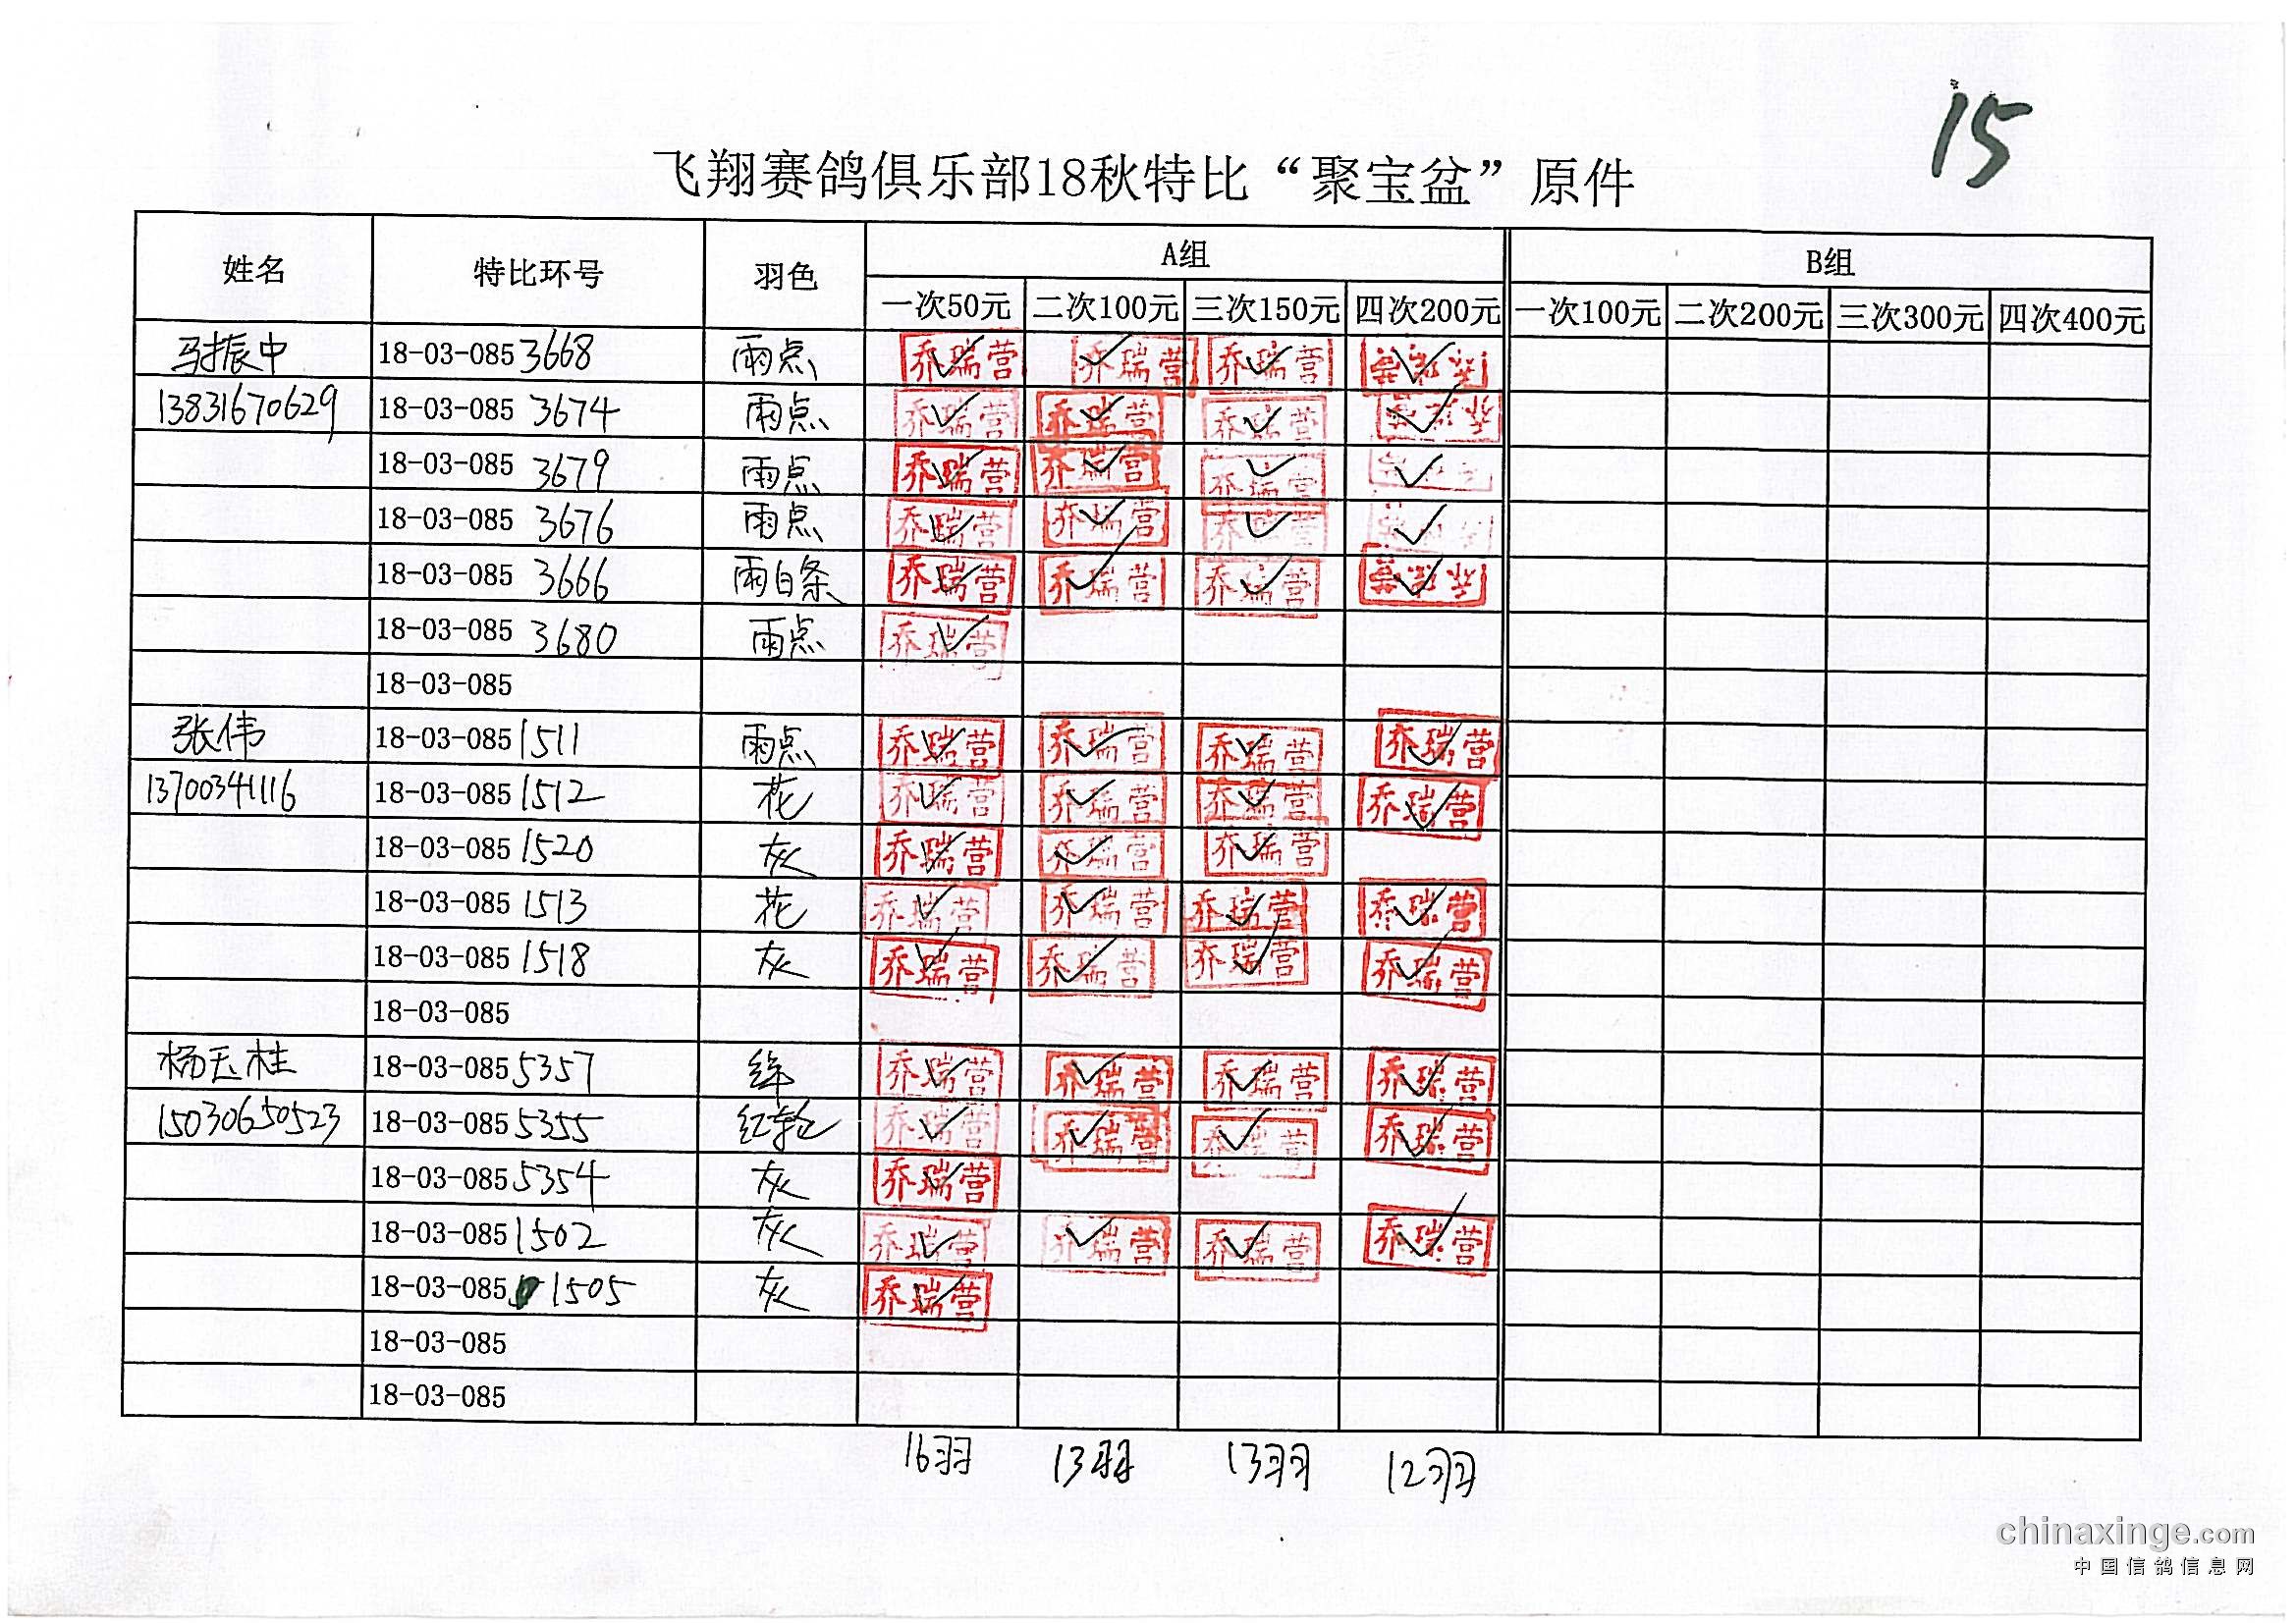 15
飞翔赛鸽俱乐部18秋特比“聚宝盆”原件
姓名 特比环号 羽色 A组 B组
一次50元 二次100元 三次150元 四次200元 一次100元 二次200元 三次300元 四次400元
马振中 18-03-085 3668 雨点 乔瑞营 乔瑞营 乔瑞营 乔瑞营
13831670629 18-03-085 3674 雨点 乔瑞营 乔瑞营 乔瑞营 乔瑞营
18-03-085 3679 雨点 乔瑞营 乔瑞营 乔瑞营
18-03-085 3676 雨点 乔瑞营 乔瑞营 乔瑞营
18-03-085 3666 雨白条 乔瑞营 乔瑞营 乔瑞营 乔瑞营
18-03-085 3680 雨点 乔瑞营
18-03-085
张伟 18-03-085 1511 雨点 乔瑞营 乔瑞营 乔瑞营 乔瑞营
13700341116 18-03-085 1512 花 乔瑞营 乔瑞营 乔瑞营 乔瑞营
18-03-085 1520 灰 乔瑞营 乔瑞营 乔瑞营
18-03-085 1513 花 乔瑞营 乔瑞营 乔瑞营 乔瑞营
18-03-085 1518 灰 乔瑞营 乔瑞营 乔瑞营 乔瑞营
18-03-085
杨玉柱 18-03-085 5357 绛 乔瑞营 乔瑞营 乔瑞营 乔瑞营
15030650523 18-03-085 5355 红轮 乔瑞营 乔瑞营 乔瑞营 乔瑞营
18-03-085 5354 灰 乔瑞营
18-03-085 1502 灰 乔瑞营 乔瑞营 乔瑞营 乔瑞营
18-03-085 1505 灰 乔瑞营
18-03-085
18-03-085
16羽 13羽 13羽 12羽
chinaxinge.com
中国信鸽信息网